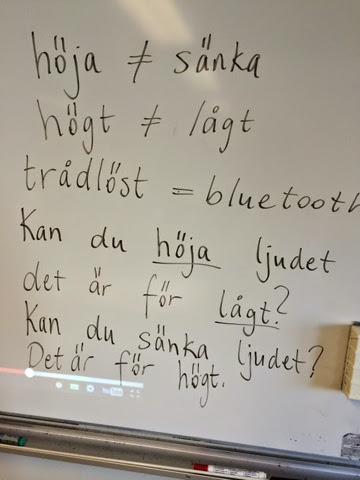 höja ≠ sänka
högt ≠ lågt
trådlöst = bluetooth
Kan du höja ljudet
det är för lågt?
Kan du sänka ljudet?
Det är för högt.